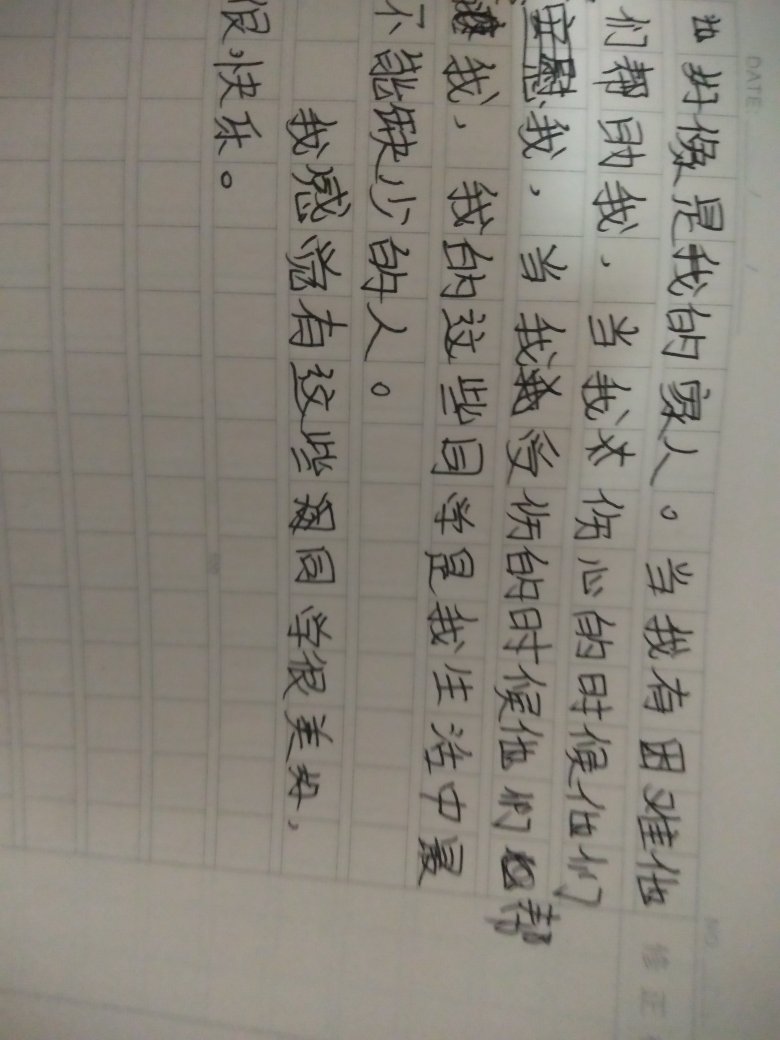 DATE: / /
NO.
好像是我的家人。当我有困难他
们帮助我,当我伤心的时候他们
安慰我,当我受伤的时候他们帮
我,我的这些同学是我生活中最
不能缺少的人。
我感觉有这些同学很美好,
很快乐。
修正